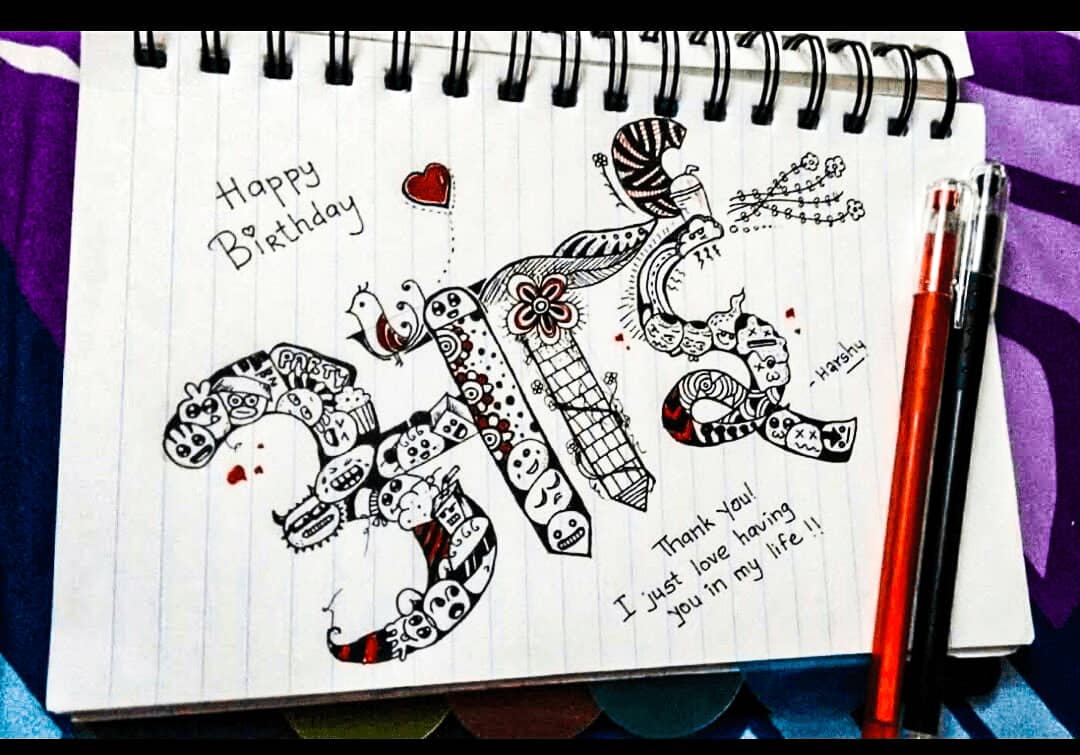 Happy
Birthday
आई
PARTY
- Harshu
Thank you!
I just love having
you in my life !!